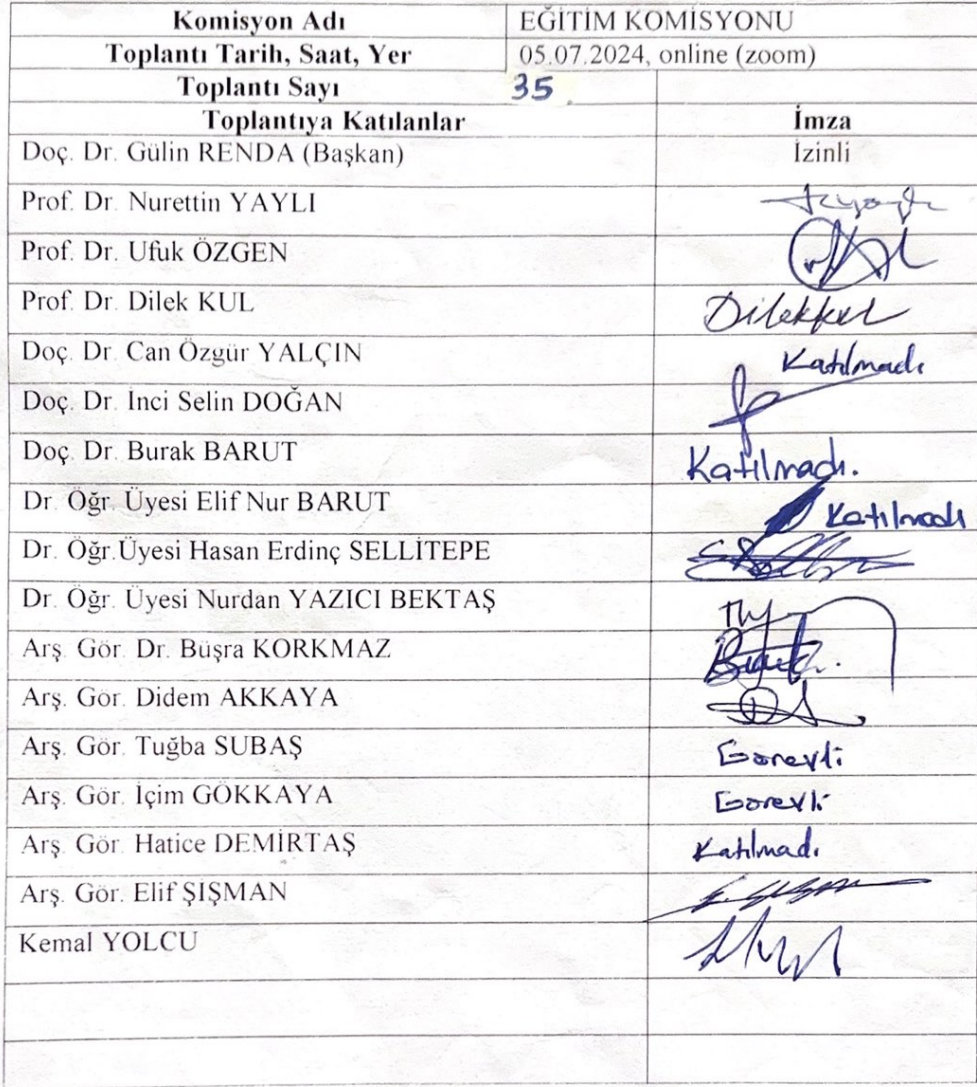 Komisyon Adı EĞİTİM KOMİSYONU
Toplantı Tarih, Saat, Yer 05.07.2024, online (zoom)
Toplantı Sayı 35
Toplantıya Katılanlar İmza
Doç. Dr. Gülin RENDA (Başkan) İzinli
Prof. Dr. Nurettin YAYLI
Prof. Dr. Ufuk ÖZGEN
Prof. Dr. Dilek KUL Dilekkul
Doç. Dr. Can Özgür YALÇIN Katılmadı
Doç. Dr. İnci Selin DOĞAN
Doç. Dr. Burak BARUT Katılmadı.
Dr. Öğr. Üyesi Elif Nur BARUT Katılmadı
Dr. Öğr.Üyesi Hasan Erdinç SELLİTEPE
Dr. Öğr. Üyesi Nurdan YAZICI BEKTAŞ
Arş. Gör. Dr. Büşra KORKMAZ
Arş. Gör. Didem AKKAYA
Arş. Gör. Tuğba SUBAŞ Görevli
Arş. Gör. İçim GÖKKAYA Görevli
Arş. Gör. Hatice DEMİRTAŞ Katılmadı
Arş. Gör. Elif ŞİŞMAN
Kemal YOLCU